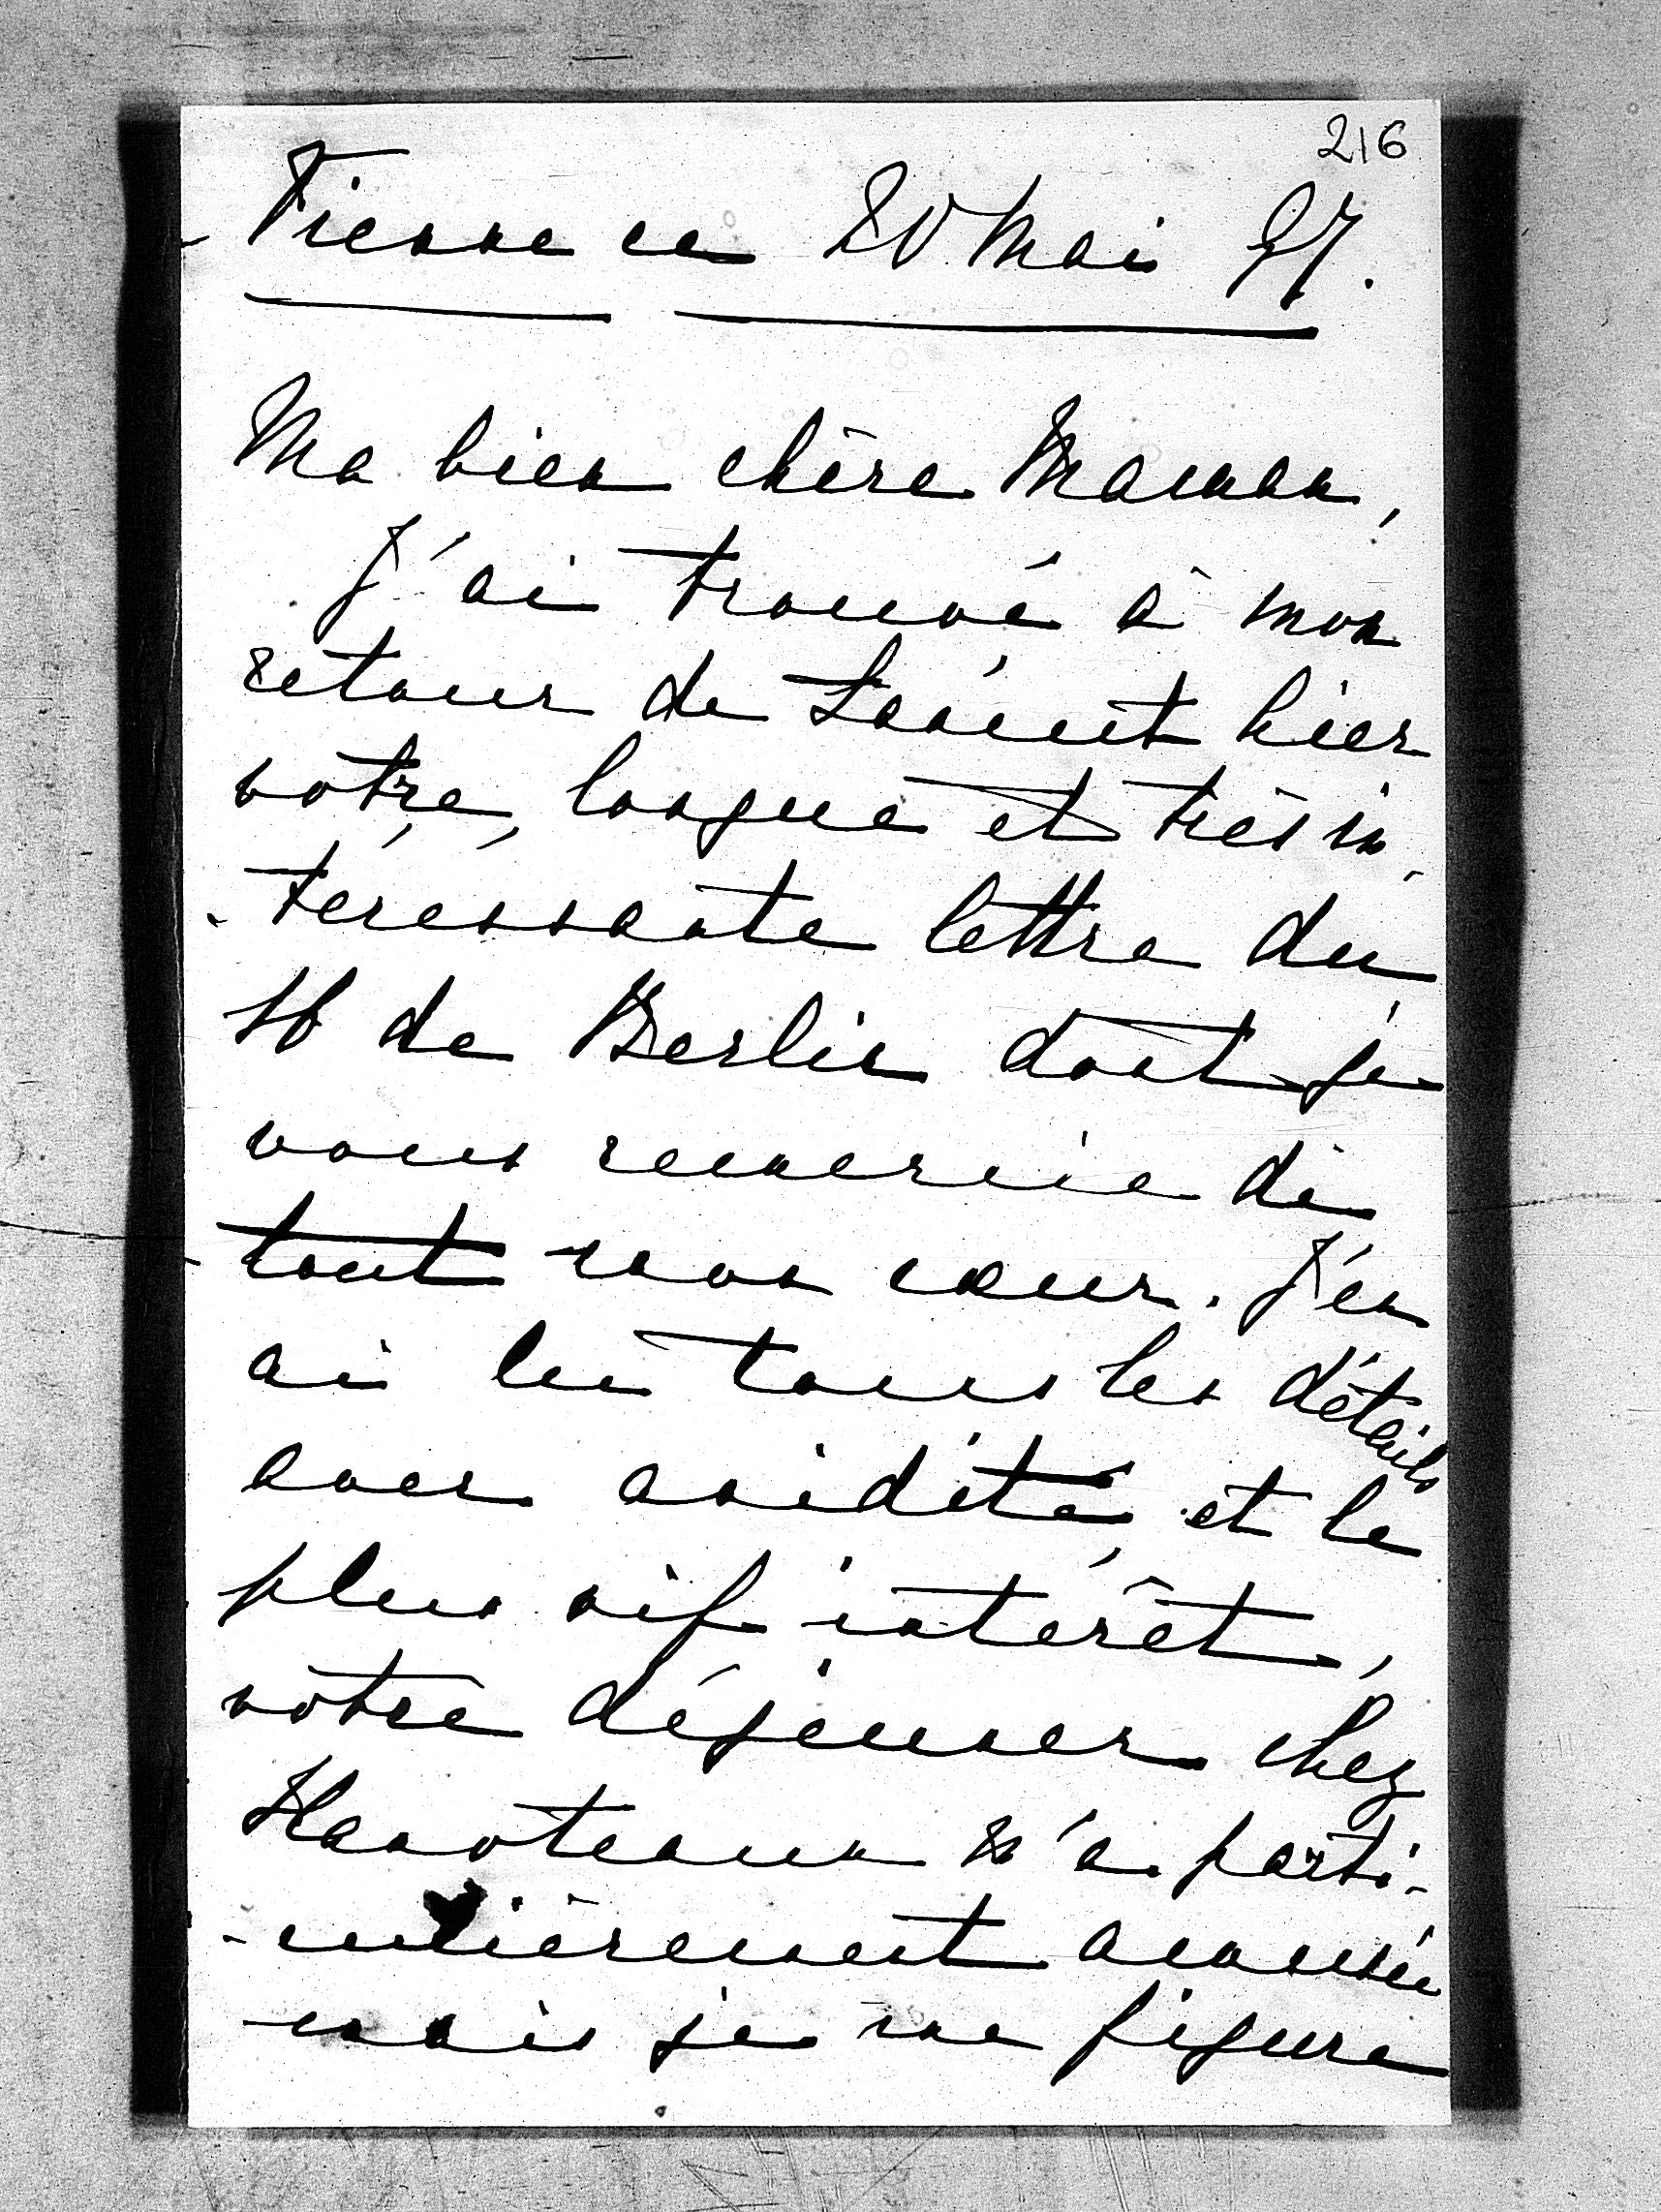 216
Vienne ce 20 Mai 97.
Ma bien chère Maman,
J'ai trouvé à mon
retour de hier
votre, longue et très in-
-téressante lettre du
16 de Berlin dont je
vous remercie de
tout mon cœur. J'en
ai lu tous les détails
avec avidité, et le
plus vif intérêt,
votre déjeuner chez
Hanoteaux m'a parti-
-culièrement amusée
mais je me figure